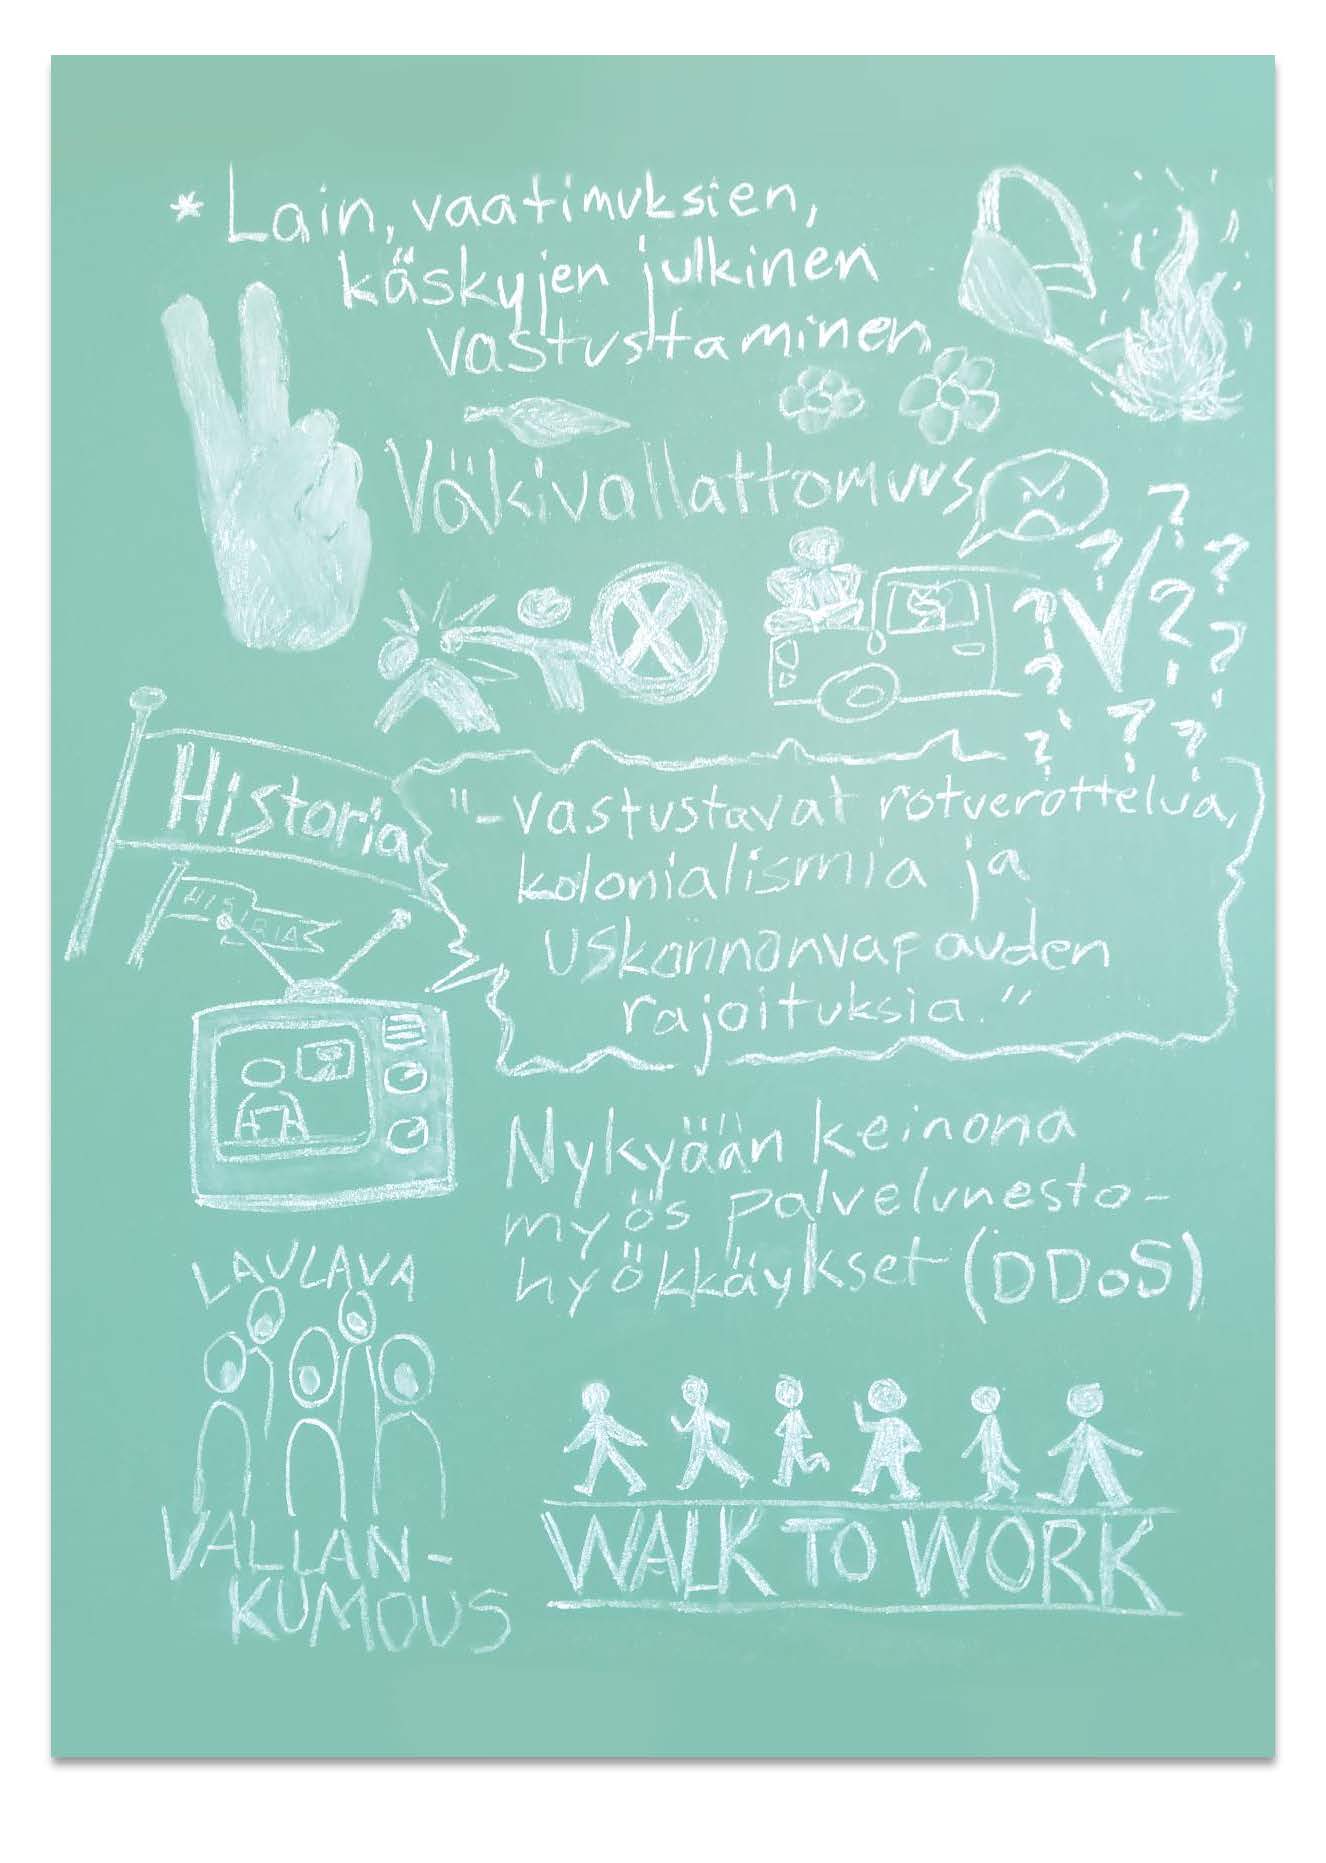 * Lain, vaatimuksien,
käskyjen julkinen
vastustaminen
Väkivallattomuus
? ? ? ? ? ? ? ? ? ? ?
Historia
HISTORIA
"-vastustavat rotuerottelua,
kolonialismia ja
uskonnonvapauden
rajoituksia."
Nykyään keinona
myös palvelunesto-
hyökkäykset (DDoS)
LAULAVA
VALLAN-
KUMOUS
WALK TO WORK